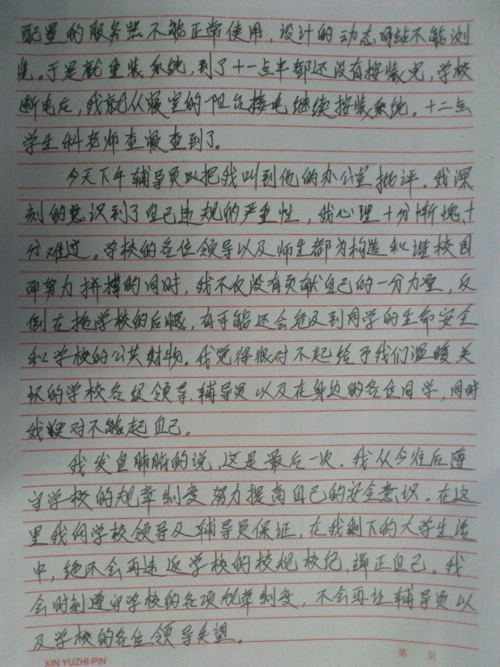 配置的服务器不能正常使用,设计的动态网站不能浏
览。于是就重装系统,到了十一点半都还没有按装完,学校
断电后,我就从寝室的阳台接电继续按装系统。十二点
学生科老师查寝查到了。
今天下午辅导员把我叫到他的办公室批评。我深
刻的意识到了自己违规的严重性,我心理十分惭愧十
分难过。学校的各位领导以及师生都为构造和谐校园
而努力拼搏的同时,我不仅没有贡献自己的一分力量,反
倒在拖学校的后腿,有可能还会危及到同学的生命安全
和学校的公共财物。我觉得很对不起给予我们温暖关
怀的学校各级领导、辅导员以及在身边的各位同学,同时
我更对不起自己。
我发自肺腑的说,这是最后一次。我从今往后遵
守学校的规章制度努力提高自己的安全意识。在这
里我向学校领导及辅导员保证,在我剩下的大学生活
中,绝不会再违反学校的校规校纪,端正自己。我
会时刻遵守学校的各项规章制度,不会再让辅导员以
及学校的各位领导失望。
XIN YUZHI PIN
第 页